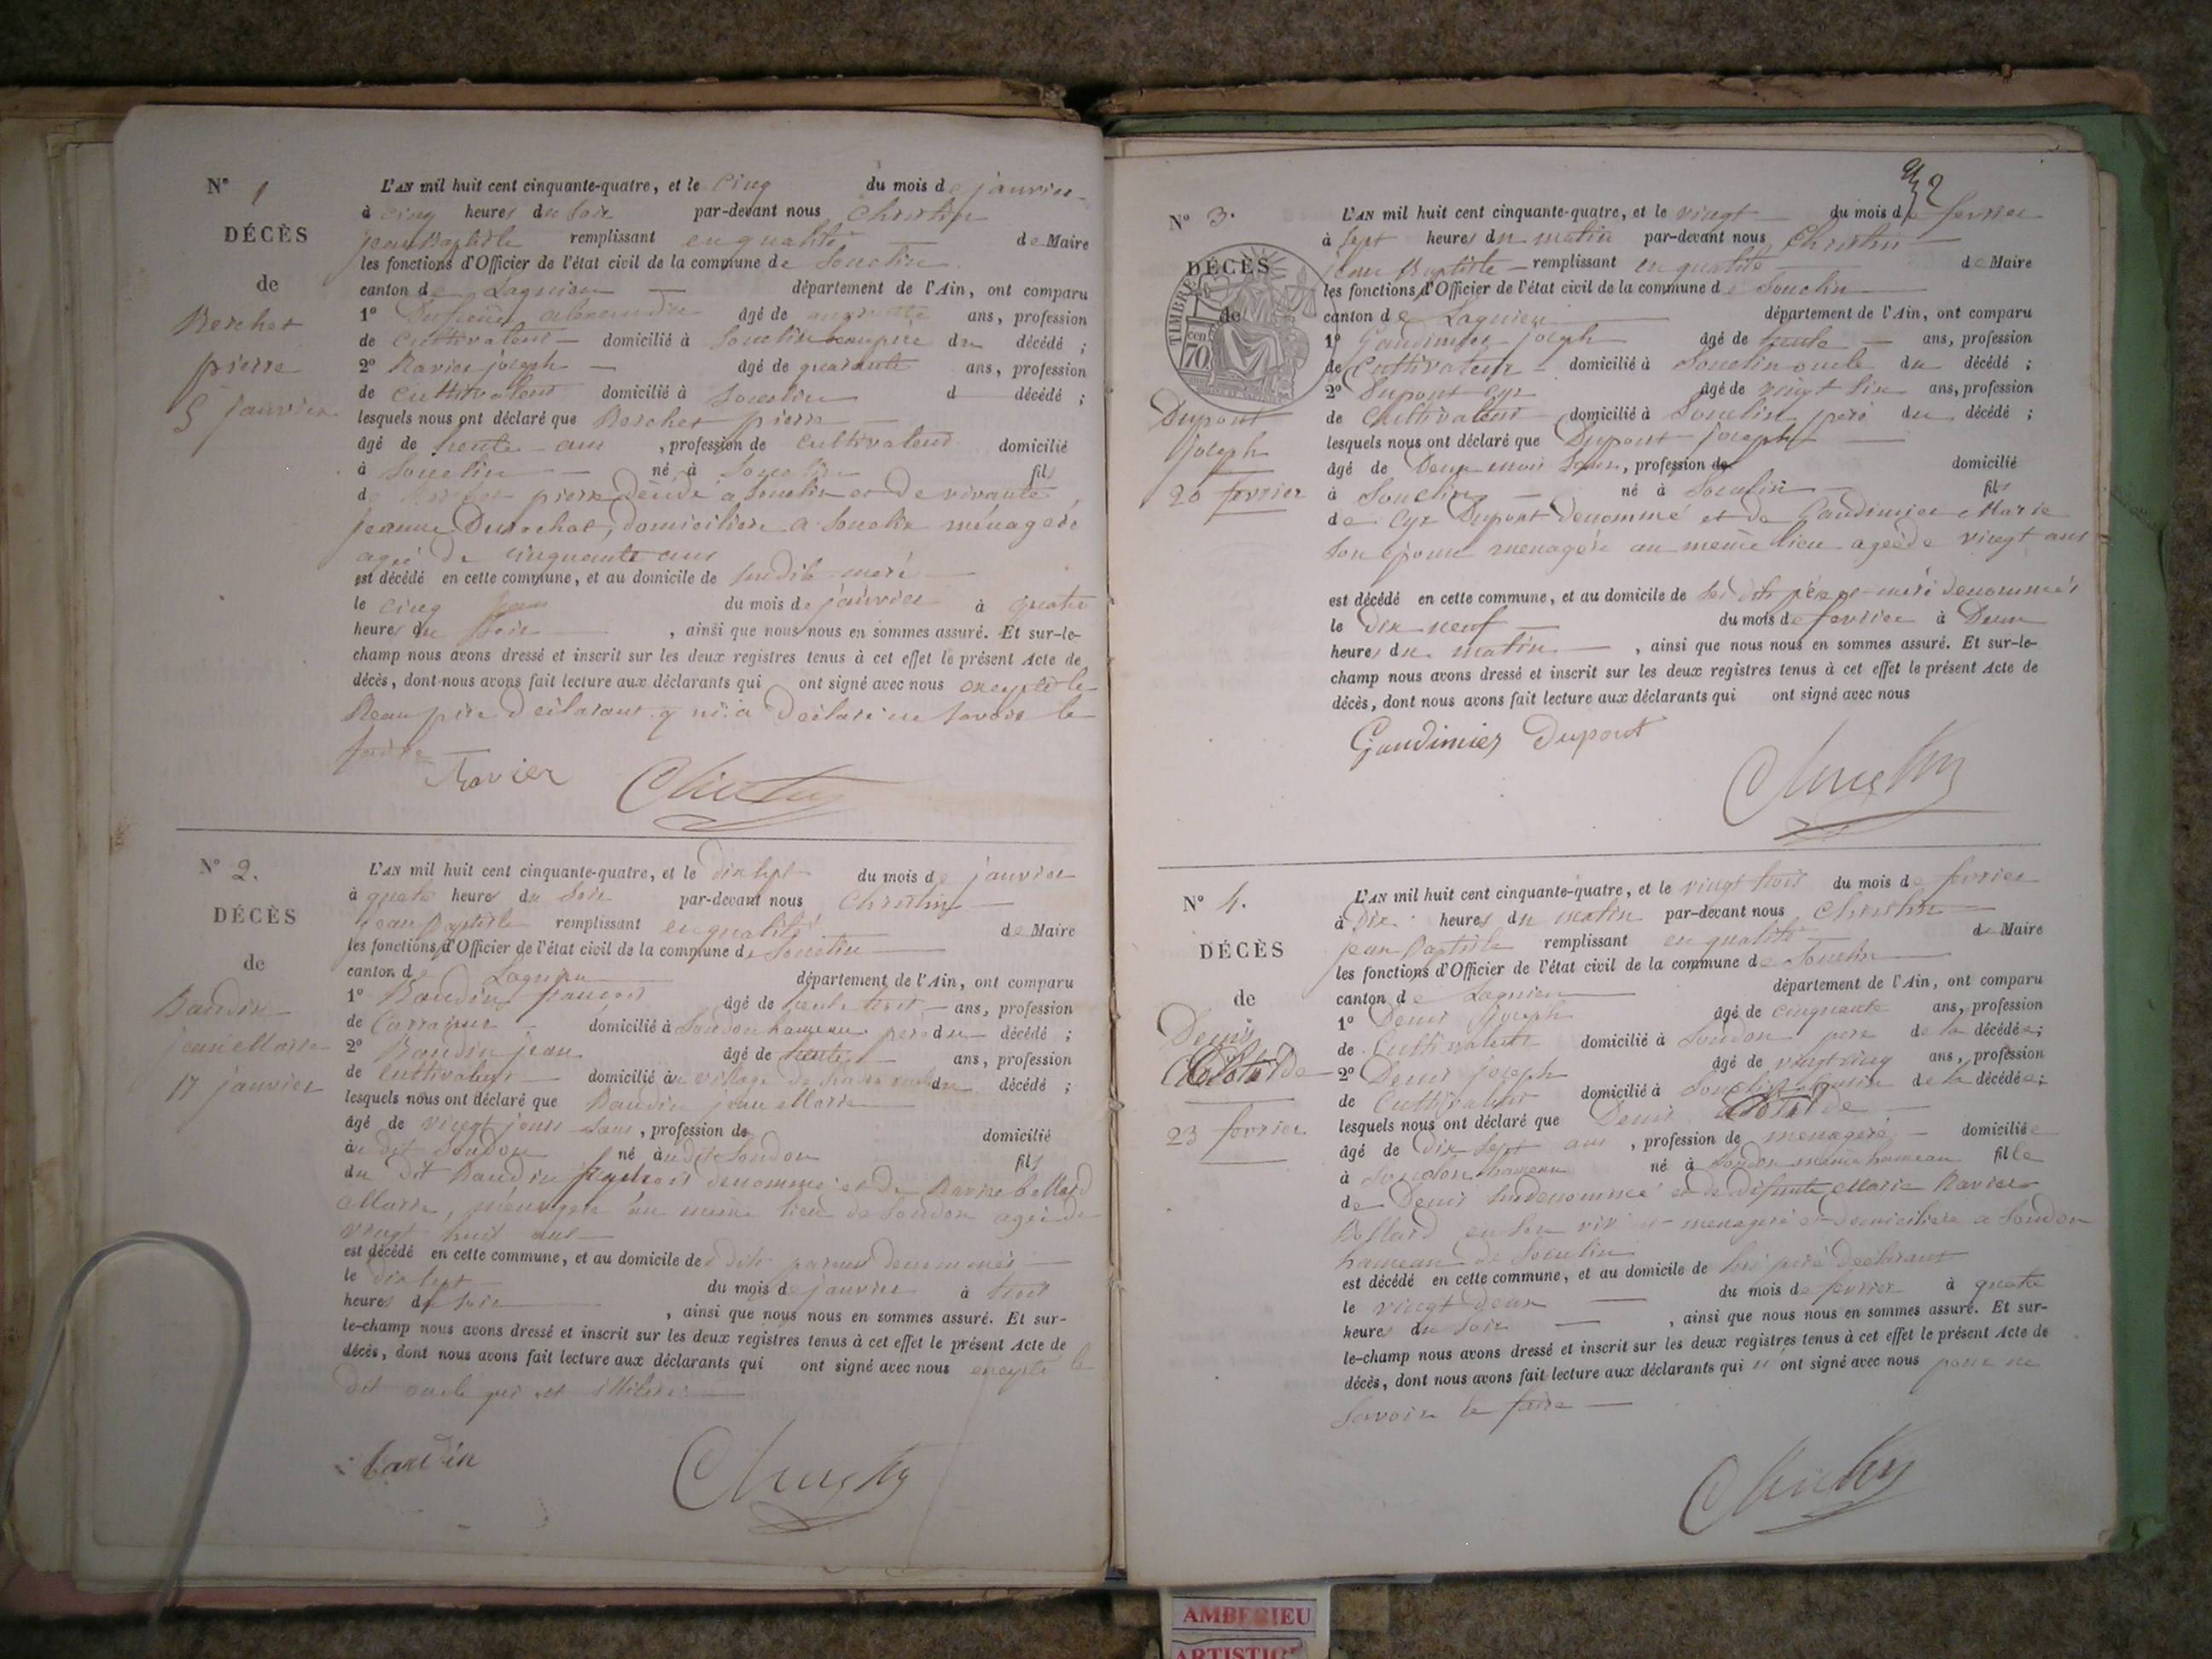 N° 1
DÉCÈS
de
Berchet
pierre
5 janvier
L'AN mil huit cent cinquante-quatre, et le cinq du mois de janvier
à cinq heures du soir par-devant nous Christin
jean Baptiste remplissant en qualité de Maire
les fonctions d'Officier de l'état civil de la commune de Souclin
canton de Lagnieu département de l'Ain, ont comparu
1° alexandre âgé de ans, profession
de Cultivateur domicilié à Souclin beaupère du décédé ;
2° Ravier joseph âgé de quarante ans, profession
de cultivateur domicilié à Souclin d décédé ;
lesquels nous ont déclaré que Berchet pierre
âgé de trente ans , profession de cultivateur domicilié
à Souclin né à Souclin fils
de Berchet pierre Décédé à Souclin et de vivante
jeanne Durochat, domiciliere a Souclin ménagere
agée de cinquante ans
est décédé en cette commune, et au domicile de sudite mere
le cinq du mois de janvier à quatre
heures du soir , ainsi que nous nous en sommes assuré. Et sur-le-
champ nous avons dressé et inscrit sur les deux registres tenus à cet effet le présent Acte de
décès, dont nous avons fait lecture aux déclarants qui ont signé avec nous excepté le
Beau pere déclarant qui a Declaré ne savoir le
faire
Ravier Christin
N° 2.
DÉCÈS
de
Baudin
jean Marie
17 janvier
L'AN mil huit cent cinquante-quatre, et le dix sept du mois de janvier
à quatre heures du soir par-devant nous Christin
jean Baptiste remplissant en qualité de Maire
les fonctions d'Officier de l'état civil de la commune de Souclin
canton de Lagnieu département de l'Ain, ont comparu
1° Baudin françois âgé de trente trois ans, profession
de domicilié à Soudon hameau pere du décédé ;
2° Baudin jean âgé de trente ans, profession
de cultivateur domicilié au village de oncle du décédé ;
lesquels nous ont déclaré que Baudin jean Marie
âgé de vingt jours sans , profession de domicilié
au dit Soudon né audit Soudon fils
du dit Baudin françois denommé et de Ravier bollard
Marie, ménagere au meme lieu de Soudon agée de
vingt huit ans
est décédé en cette commune, et au domicile de dits parens denommés
le dix sept du mois de janvier à trois
heures du soir , ainsi que nous nous en sommes assuré. Et sur-
le-champ nous avons dressé et inscrit sur les deux registres tenus à cet effet le présent Acte de
décès, dont nous avons fait lecture aux déclarants qui ont signé avec nous excepté le
dit oncle qui est illiteré
baudin Christin
N° 3.
DÉCÈS
de
TIMBRE
cen
70
Dupont
joseph
20 fevrier
L'AN mil huit cent cinquante-quatre, et le vingt du mois de fevrier
à sept heures du matin par-devant nous Christin
jean Baptiste remplissant en qualité de Maire
les fonctions d'Officier de l'état civil de la commune de Souclin
canton de Lagnieu département de l'Ain, ont comparu
1° Gaudimier joseph âgé de trente ans, profession
de Cultivateur domicilié à Souclin oncle du décédé ;
2° Dupont Cyr âgé de vingt six ans, profession
de Cultivateur domicilié à Souclin pere du décédé ;
lesquels nous ont déclaré que Dupont joseph
âgé de Deux mois sans, profession de domicilié
à Souclin né à Souclin fils
de Cyr Dupont denommé et de Gaudimier Marie
son epouse menagére au meme lieu ageé de vingt ans
est décédé en cette commune, et au domicile de ses dits pére et mére denommés
le dix neuf du mois de fevrier à Deux
heures du matin , ainsi que nous nous en sommes assuré. Et sur-le-
champ nous avons dressé et inscrit sur les deux registres tenus à cet effet le présent Acte de
décès, dont nous avons fait lecture aux déclarants qui ont signé avec nous
Gaudimier Dupont
Christin
N° 4.
DÉCÈS
de
Denis
Clotilde
23 fevrier
L'AN mil huit cent cinquante-quatre, et le vingt trois du mois de fevrier
à Dix heures du matin par-devant nous Christin
jean Baptiste remplissant en qualité de Maire
les fonctions d'Officier de l'état civil de la commune de Souclin
canton de Lagnieu département de l'Ain, ont comparu
1° Denis joseph âgé de cinquante ans, profession
de Cultivateur domicilié à Soudon pere de la décédée;
2° Denis joseph âgé de vingt cinq ans, profession
de Cultivateur domicilié à Souclin cousin de la décédée;
lesquels nous ont déclaré que Denis Clotilde
âgé de dix sept ans , profession de menagere domiciliée
à Soudon hameau né à Soudon meme hameau fille
de Denis susdenommé et de défunte Marie Ravier
Bollard en son vivant menageré et domiciliere a Soudon
hameau de Souclin
est décédé en cette commune, et au domicile de son peré declarant
le vingt deux du mois de fevrier à quatre
heures du soir , ainsi que nous nous en sommes assuré. Et sur-
le-champ nous avons dressé et inscrit sur les deux registres tenus à cet effet le présent Acte de
décès, dont nous avons fait lecture aux déclarants qui n'ont signé avec nous pour ne
savoir le faire
Christin
AMBERIEU
ARTISTIQ